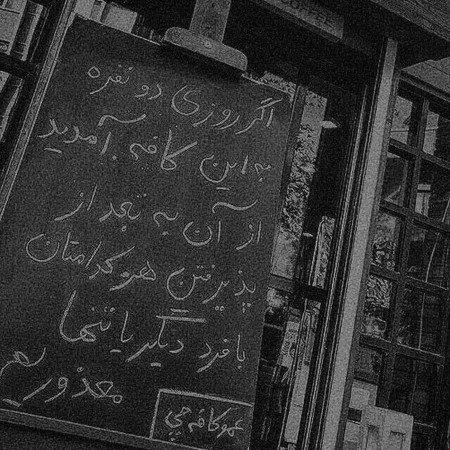 COFFEE
اگر روزی دو نفره
به این کافه آمدید
از آن به بعد از
پذیرفتن هر کدامتان
با فرد دیگر یا تنها
معذوریم
عمو کافه چی